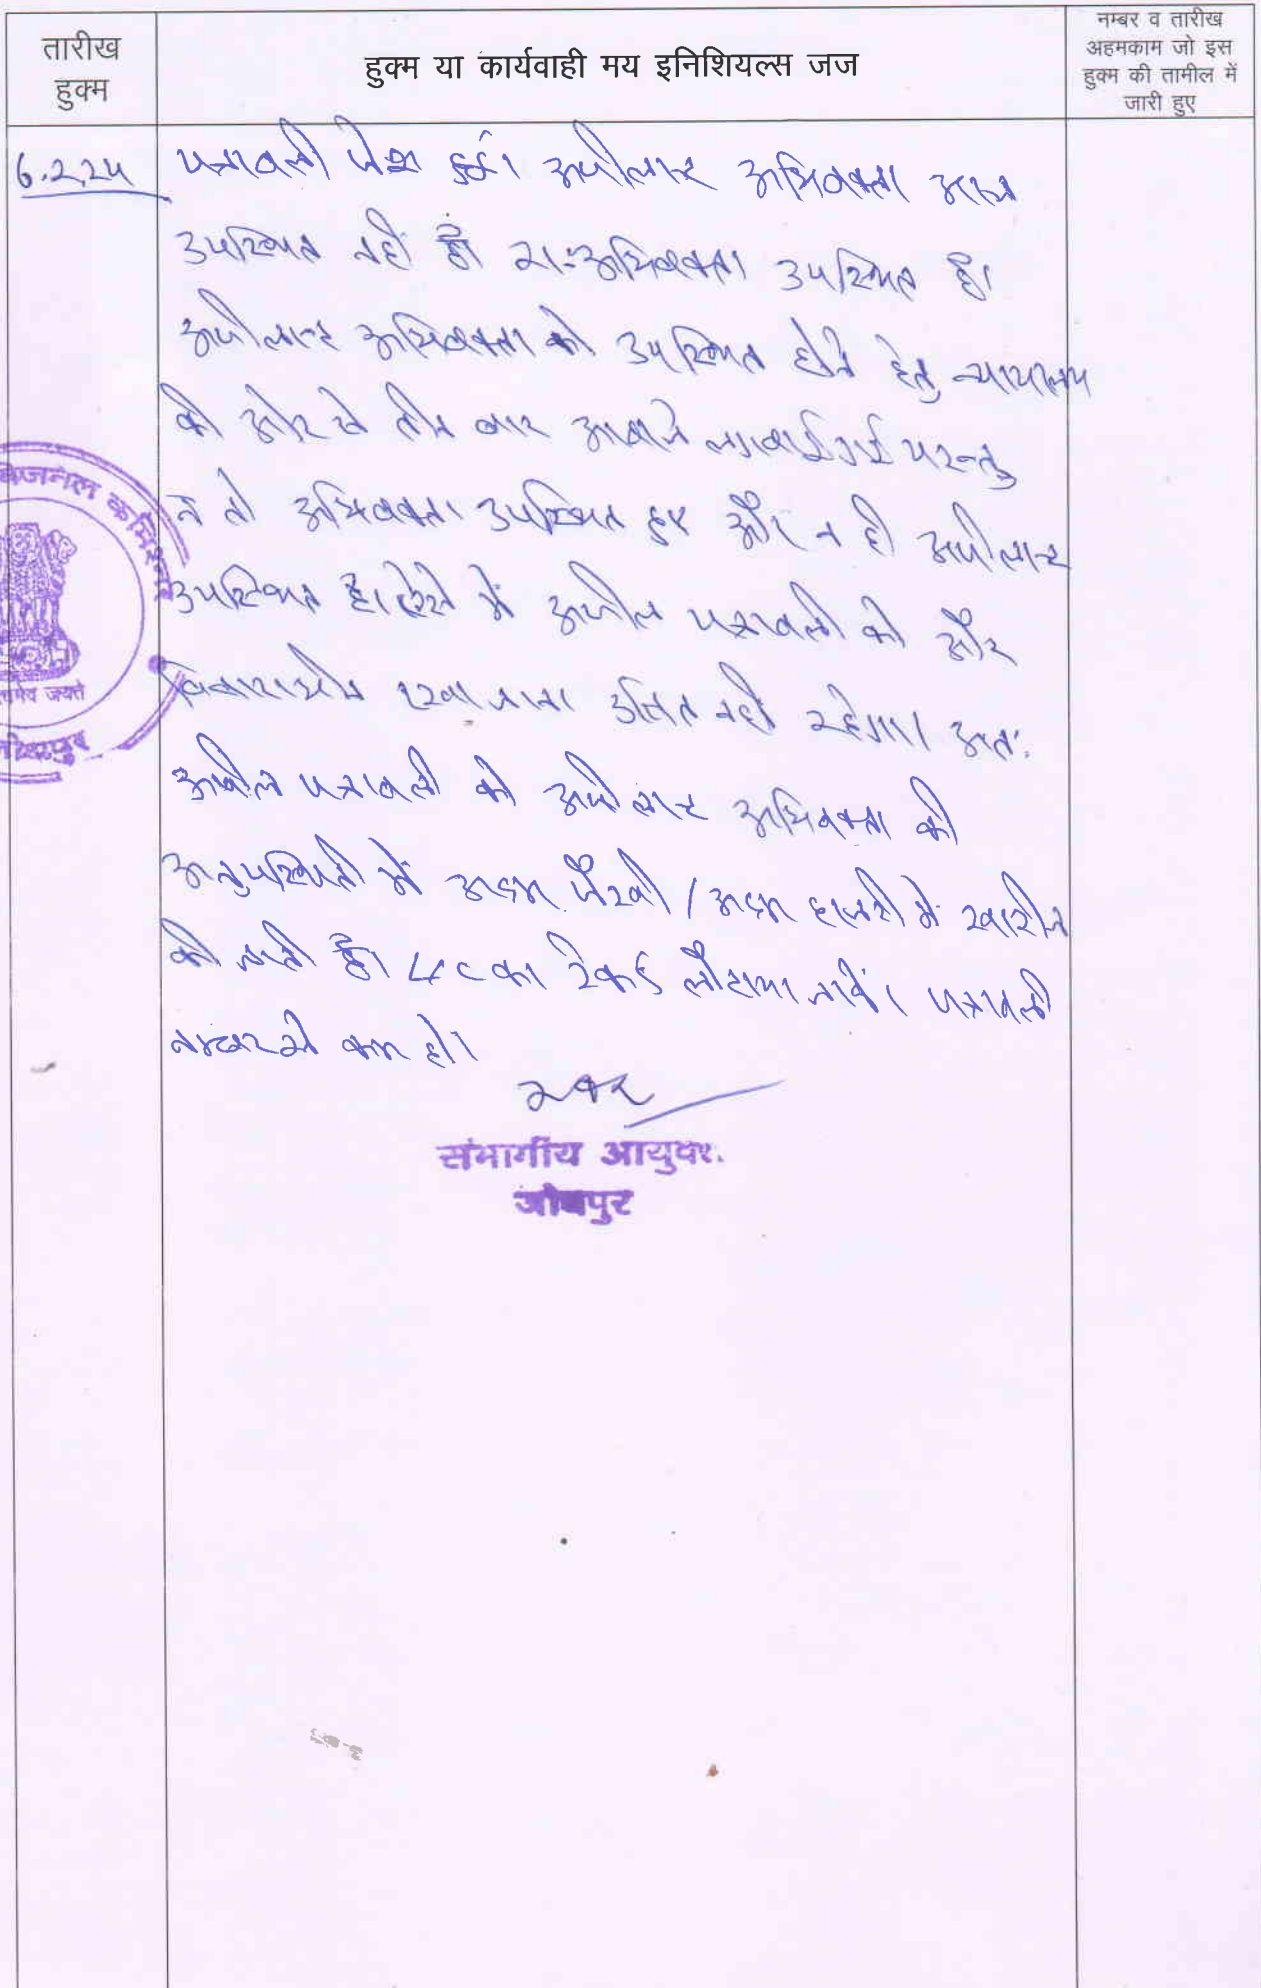 तारीख
हुक्म
हुक्म या कार्यवाही मय इनिशियल्स जज
नम्बर व तारीख
अहमकाम जो इस
हुक्म की तामील में
जारी हुए
6.2.24
पत्रावली पेश हुई। अपीलान्ट अभिवक्ता आज
उपस्थित नहीं है। रा. अभिवक्ता उपस्थित है।
अपीलान्ट अभिवक्ता को उपस्थित होने हेतु न्यायालय
की ओर से तीन बार आवाजे लगवाई गई परन्तु
न तो अभिवक्ता उपस्थित हुए और न ही अपीलान्ट
उपस्थित है। ऐसे में अपील पत्रावली को और
विचाराधीन रखा जाना उचित नहीं रहेगा। अतः
अपील पत्रावली को अपीलान्ट अभिवक्ता की
अनुपस्थिती में अदम पैरवी / अदम हाजरी में खारीज
की जाती है। LC का रेकर्ड लौटाया जावें। पत्रावली
नम्बर से कम हो।
संभागीय आयुक्त
जोधपुर
विजनल कमिश्नर
सत्यमेव जयते
जोधपुर